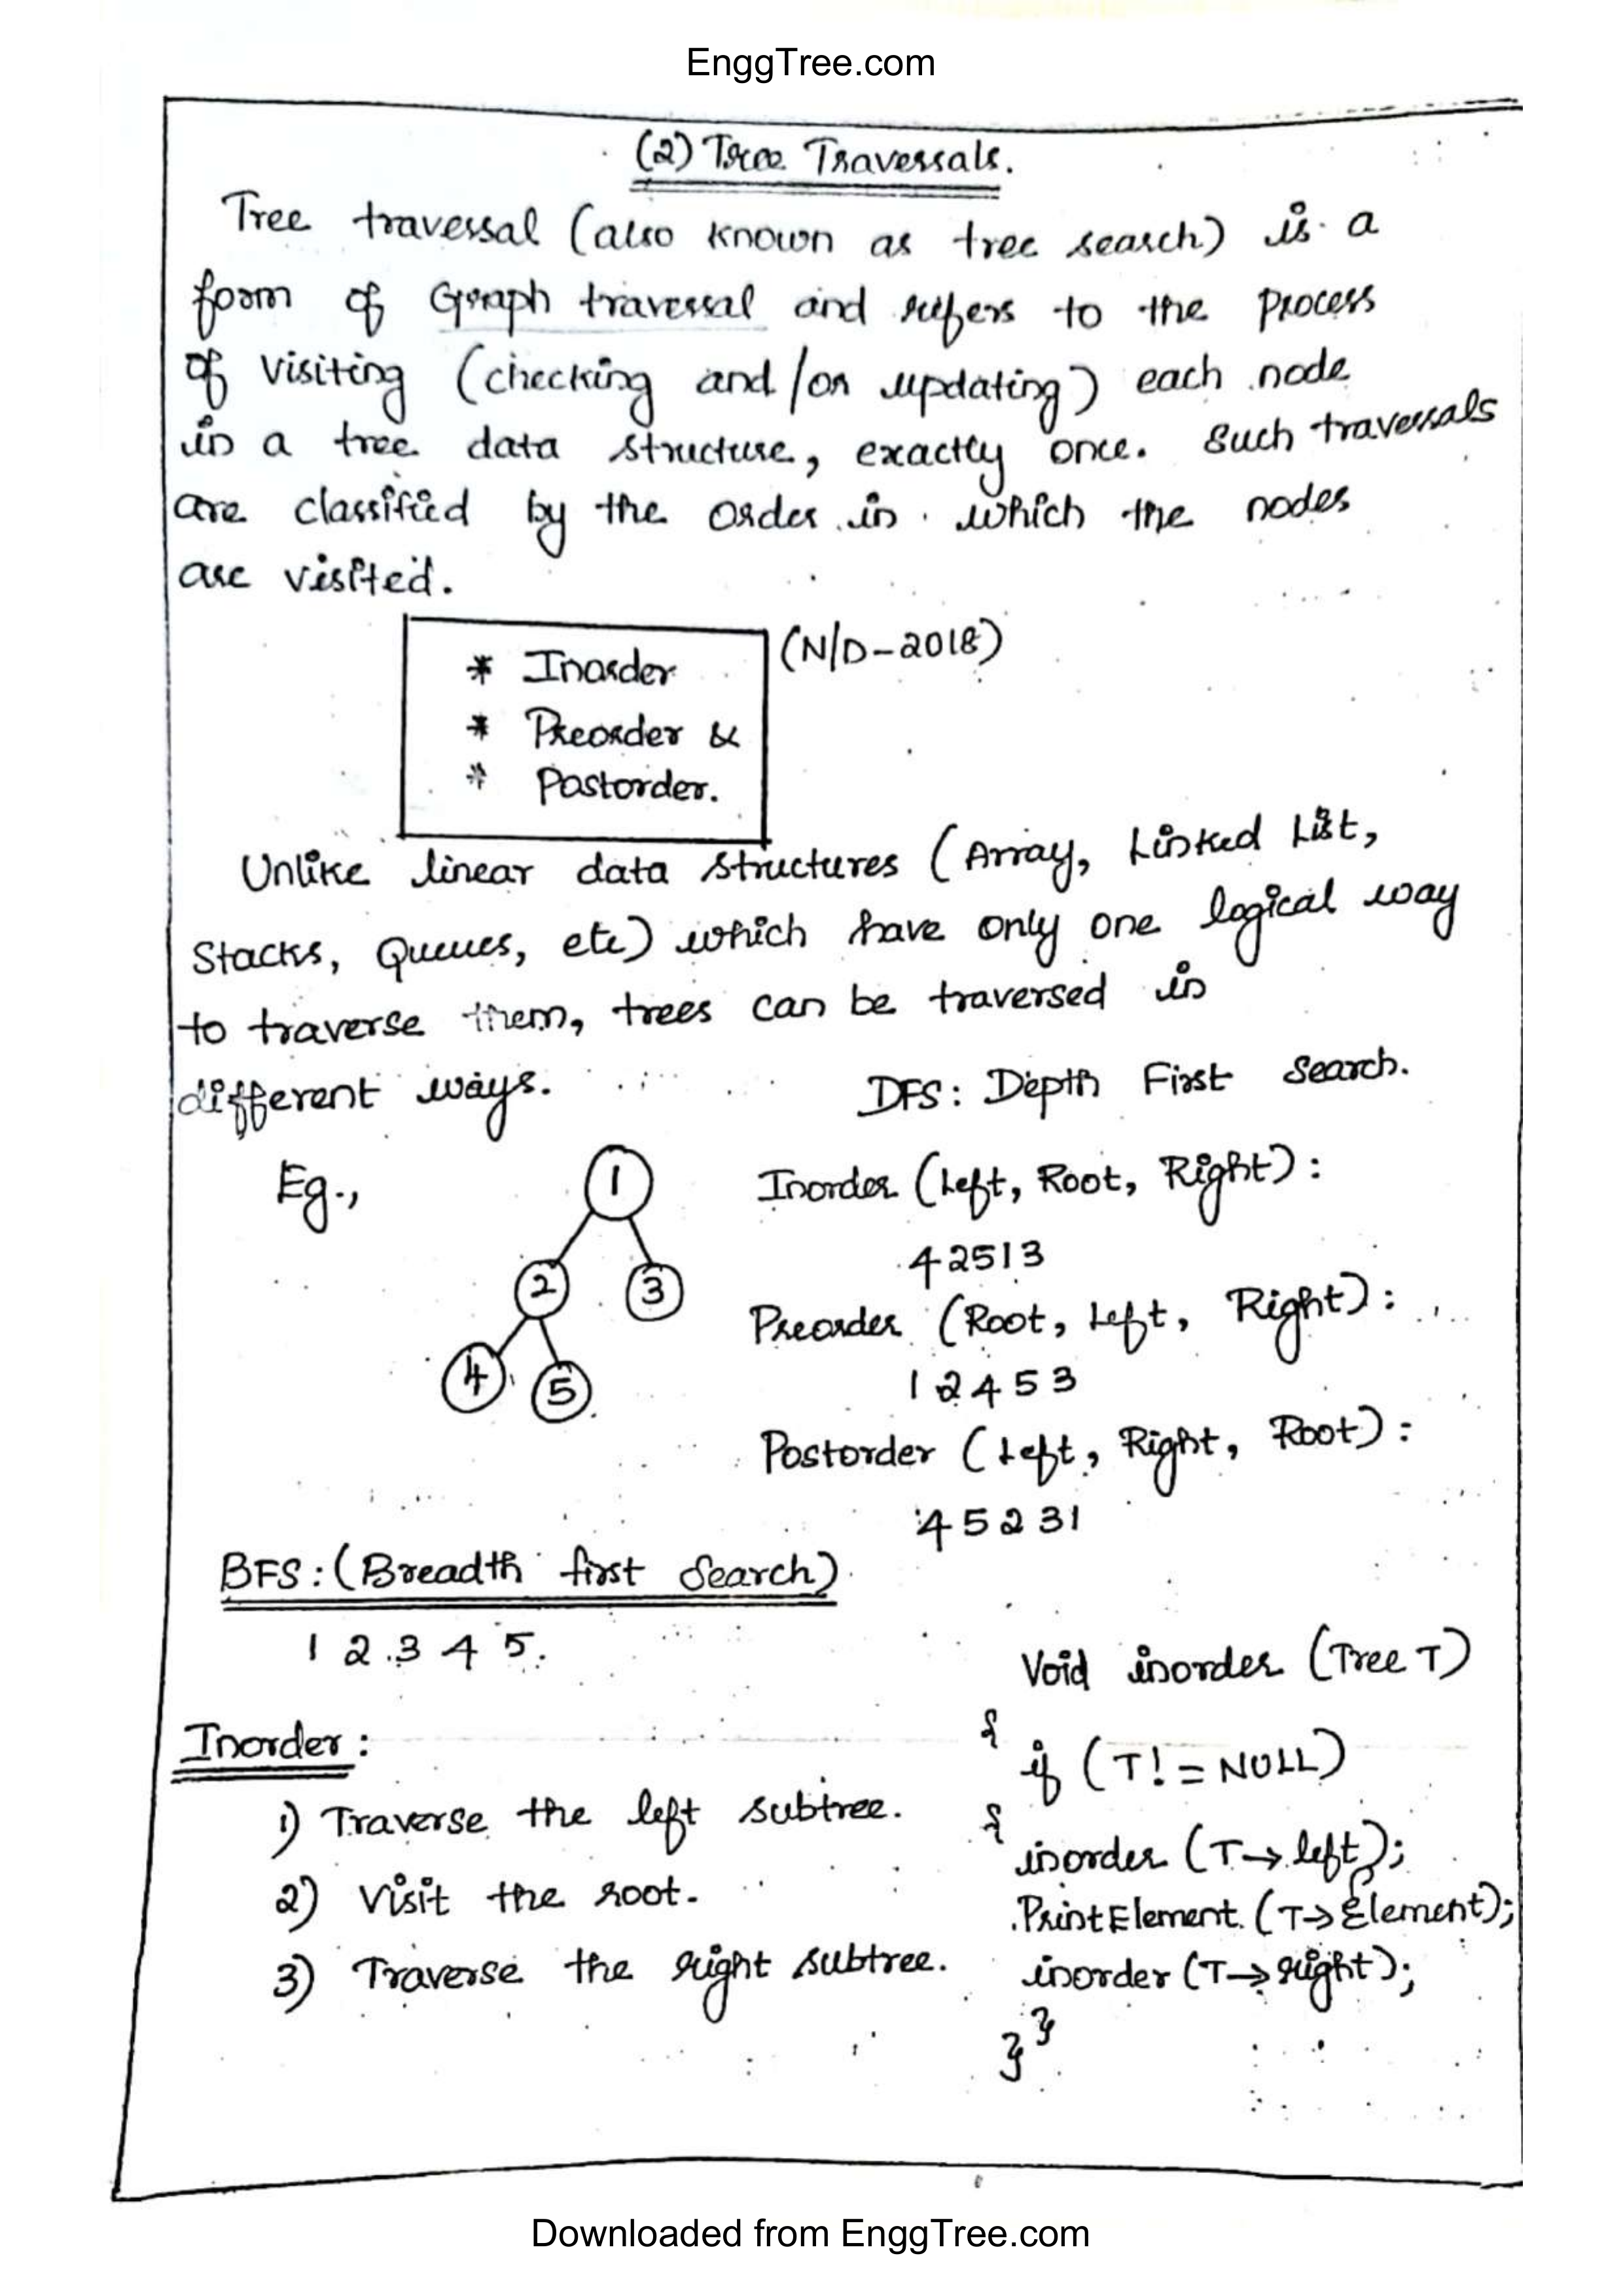 EnggTree.com
(2) Tree Traversals.
Tree traversal (also known as tree search) is a
form of Graph traversal and refers to the process
of visiting (checking and/or updating) each node
in a tree data structure, exactly once. Such traversals
are classified by the order in which the nodes
are visited.
* Inorder (N/D-2018)
* Preorder &
* Postorder.
Unlike linear data structures (Array, Linked List,
Stacks, Queues, etc) which have only one logical way
to traverse them, trees can be traversed in
different ways.
DFS: Depth First Search.
Eg.,
1
2 3
4 5
Inorder (Left, Root, Right):
42513
Preorder (Root, Left, Right):
1 2 4 5 3
Postorder (Left, Right, Root):
4 5 2 3 1
BFS: (Breadth first Search)
1 2 3 4 5.
Inorder:
1) Traverse the left subtree.
2) Visit the root.
3) Traverse the right subtree.
Void inorder (Tree T)
{
if (T! = NULL)
{
inorder (T→left);
PrintElement (T→Element);
inorder (T→right);
}
}
Downloaded from EnggTree.com